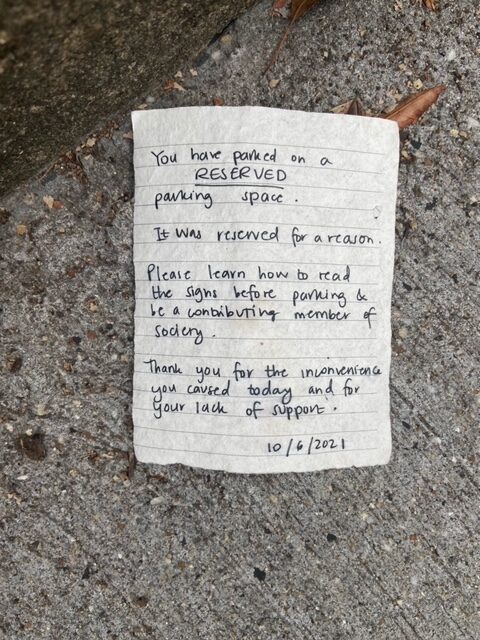 You have parked on a
RESERVED
parking space.
It was reserved for a reason.
Please learn how to read
the signs before parking &
be a contributing member of
society.
Thank you for the inconvenience
you caused today and for
your lack of support.
10/6/2021